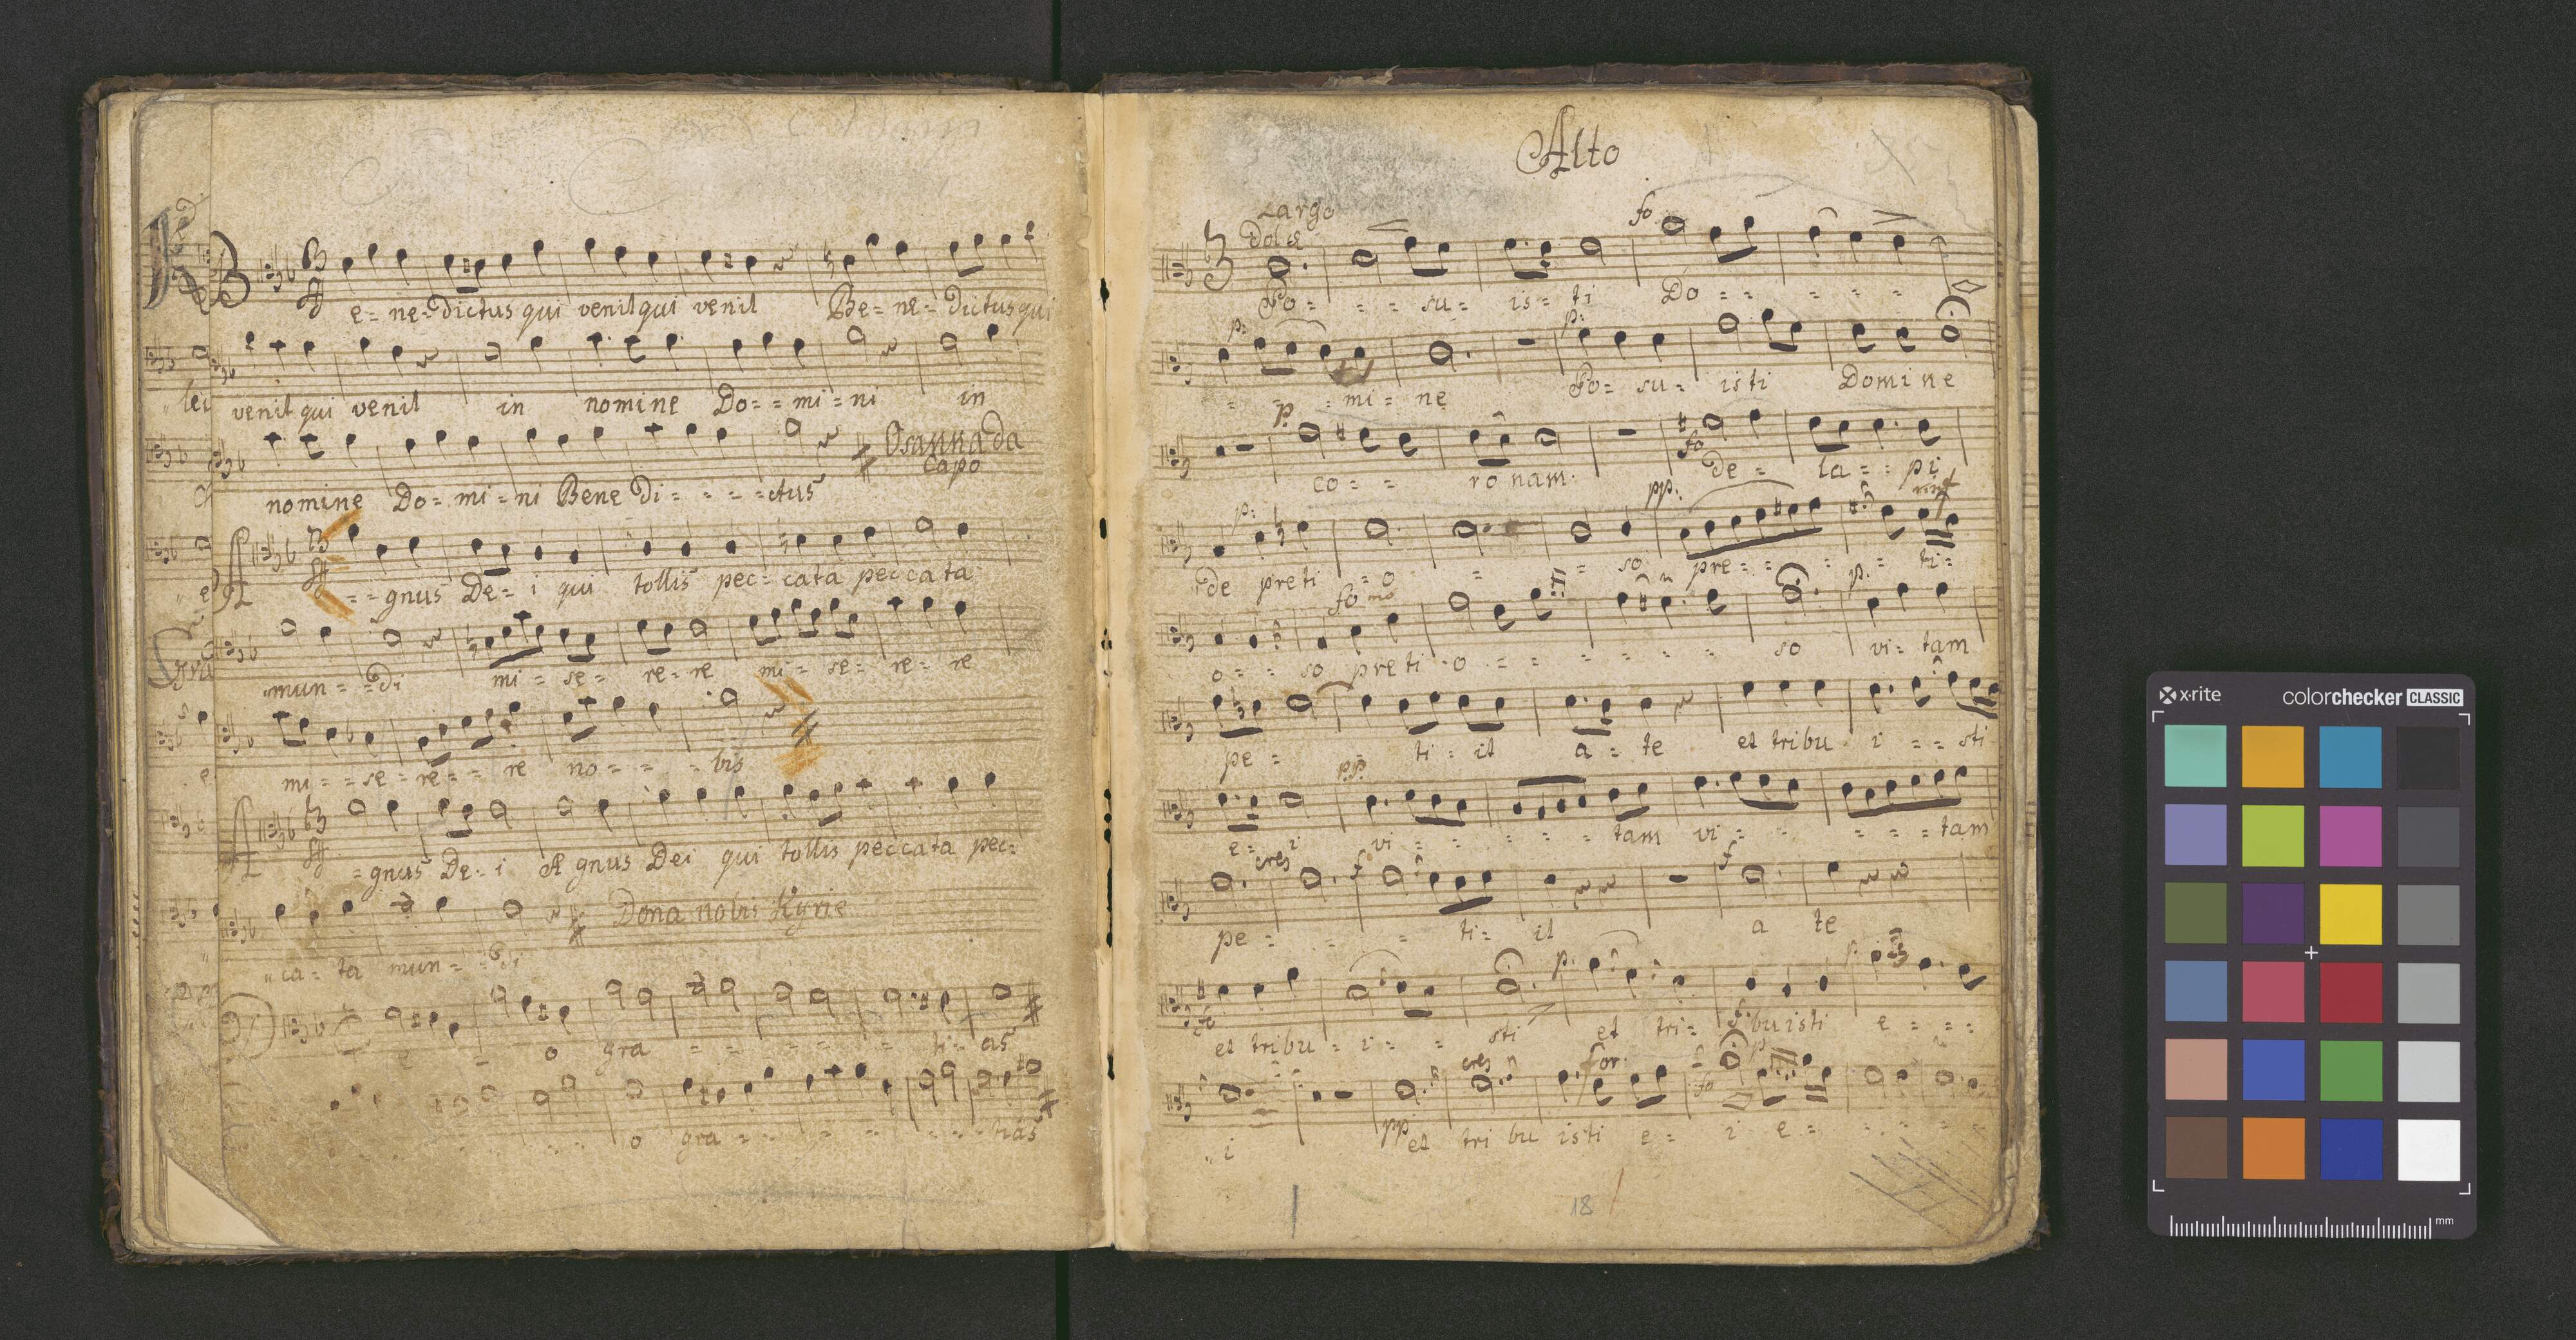 B
e = ne = dictus qui venit qui venit Be = ne = dictus qui
venit qui venit in nomine Do = = mi = ni in
Osanna da
capo
nomine Do = mi = ni Bene Di = - - = ctus
A = = gnus De = i qui tollis pec = cata peccata
mun = = di mi = se = re = re mi = se = re = re
mi = = se = re = = re no = - - = bis
A = gnus De = i A gnus Dei qui tollis peccata pec =
Dona nobis Kyrie
"ca = ta mun = = di
e - o gra = = = = = ti = as
o gra = - - = - - tias
Alto
Largo
Dolce
fo
Po = = = su = is = ti Do = = = = =
p: p:
= = = mi = ne Po = su = isti Domine
p. fo
co = = ro nam. de = la = = pi
p: pp: rinf
de preti = o = = so pre = = = = ti =
fo mo p.
o = = so preti - o = = = = = = so vi = tam
pe = = ti = it a = te et tribu i = = sti
pp.
e = i vi = = = = = tam vi = = = = = tam
cres f f
pe = = = ti = it a te
p. p.
fo
et tribu = i = = sti et tri = buisti e = = =
f.
cres for. fo p
pp
"i et tri bu isti e = i e = = = = =
18
x-rite
colorchecker CLASSIC
mm